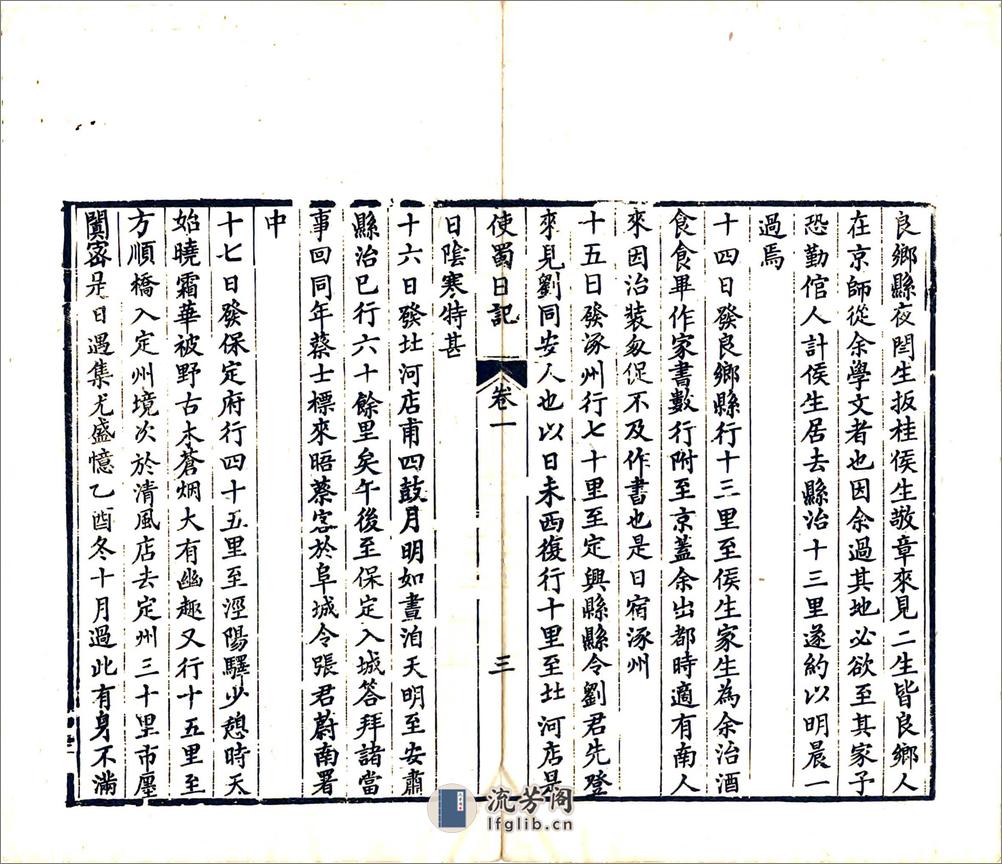 良鄉縣夜閏生扳桂侯生敬章來見二生皆良鄉人
在京師從余學文者也因余過其地必欲至其家予
恐勤倌人計侯生居去縣治十三里遂約以明晨一
過焉
十四日發良鄉縣行十三里至侯生家生為余治酒
食食畢作家書數行附至京蓋余出都時適有南人
來因治裝匆促不及作書也是日宿涿州
十五日發涿州行七十里至定興縣縣令劉君先登
來見劉同安人也以日未西復行十里至北河店是
使蜀日記
卷一
三
日陰寒特甚
十六日發北河店甫四鼓月明如晝泊天明至安肅
縣治已行六十餘里矣午後至保定入城答拜諸當
事回同年蔡士標來晤蔡客於阜城令張君蔚南署
中
十七日發保定府行四十五里至涇陽驛少憩時天
始曉霜華被野古木蒼烟大有幽趣又行十五里至
方順橋入定州境次於清風店去定州三十里市廛
闐密是日遇集尤盛憶乙酉冬十月過此有身不滿
流芳阁
lfglib.cn